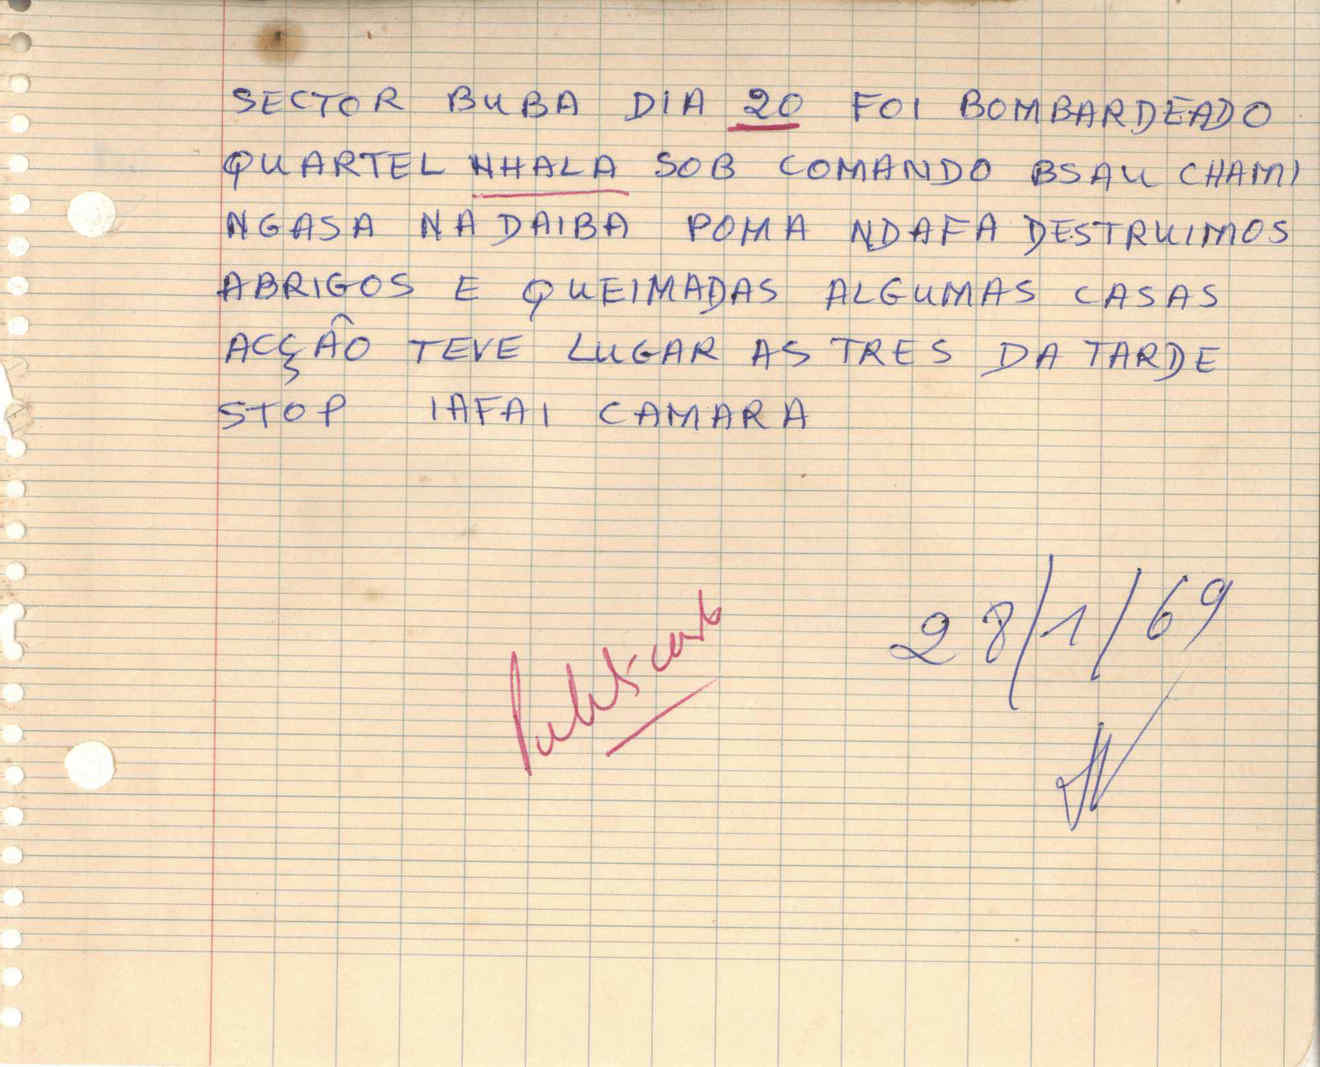 SECTOR BUBA DIA 20 FOI BOMBARDEADO
QUARTEL NHALA SOB COMANDO BSAU CHAMI
NGASA NA DAIBA POMA NDAFA DESTRUIMOS
ABRIGOS E QUEIMADAS ALGUMAS CASAS
ACÇÂO TEVE LUGAR AS TRES DA TARDE
STOP IAFAI CAMARA
28/1/69